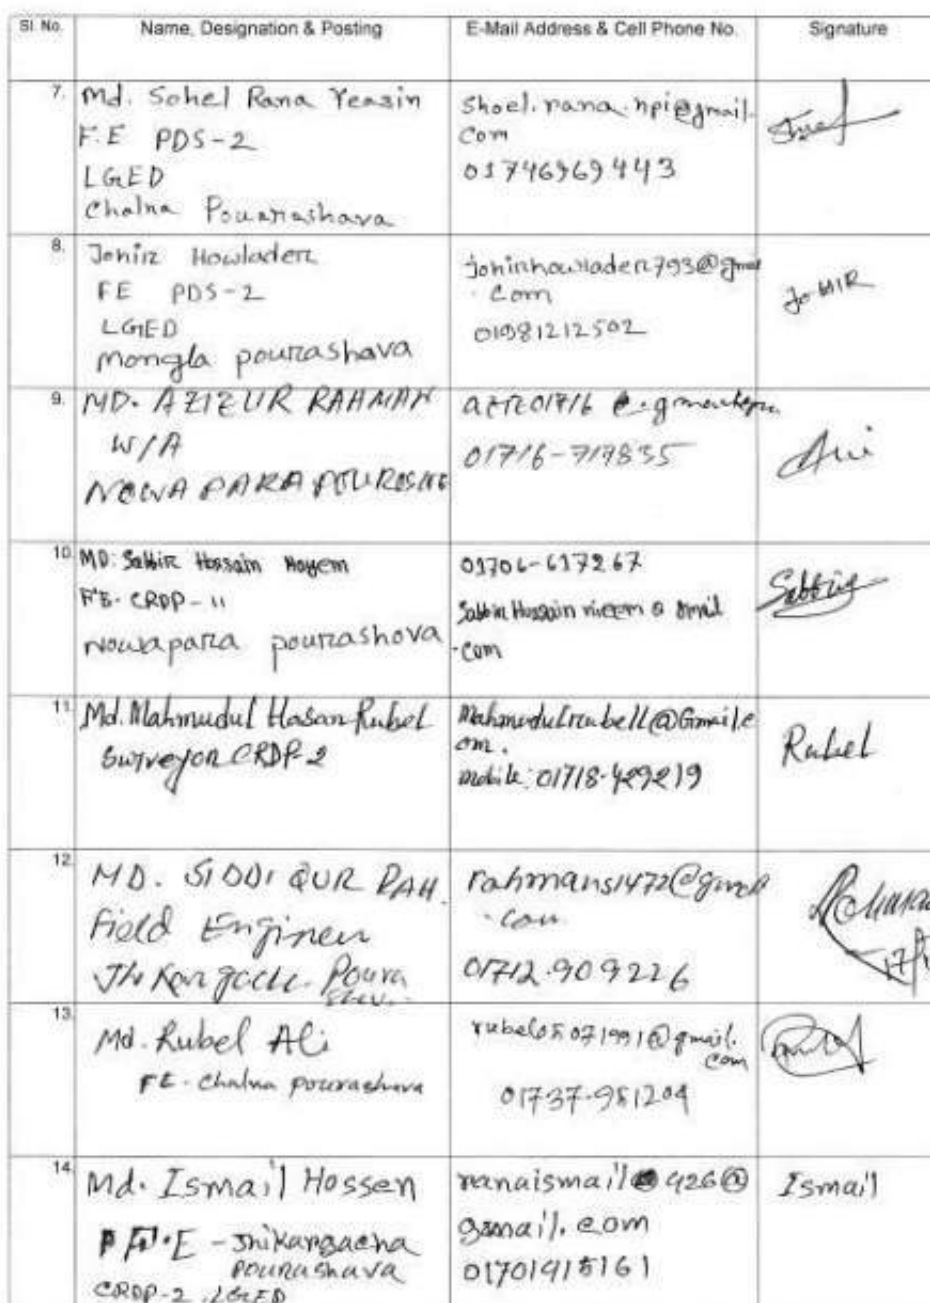 Sl. No.
Name, Designation & Posting
E-Mail Address & Cell Phone No.
Signature
7.
Md. Sohel Rana Yeasin
F.E PDS-2
LGED
Chalna Pourashava
shoel.rana.npi@gmail.
com
01746969443
8.
Johir Howlader
FE PDS-2
LGED
Mongla pourashava
johirhowlader793@gmail
.com
01981212502
JoHIR
9.
MD. AZIZUR RAHMAN
W/A
NOWA PARA
01716-717835
10.
MD: Sabbir Hossain Nayem
F.E- CRDP-11
Nowapara pourashova
01706-617267
Sabbir Hussain nieem @ gmail
.com
Sabbir
11.
Md. Mahmudul Hasan Rubel
Surveyor CRDP-2
Mahmudulrubell@Gmail.c
om.
mobile: 01718-429219
Rubel
12.
MD. SIDDIQUR RAH.
Field Engineer
Poura
rahmans1472@gmail
.com
01712.909226
13.
Md. Rubel Ali
FE- Chalna pourashava
rubel05071991@gmail.
com
01737-981204
14.
Md. Ismail Hossen
F.E - Jhikargacha
pourashava
CRDP-2, LGED
ranaismail 426@
gmail.com
01701915161
Ismail